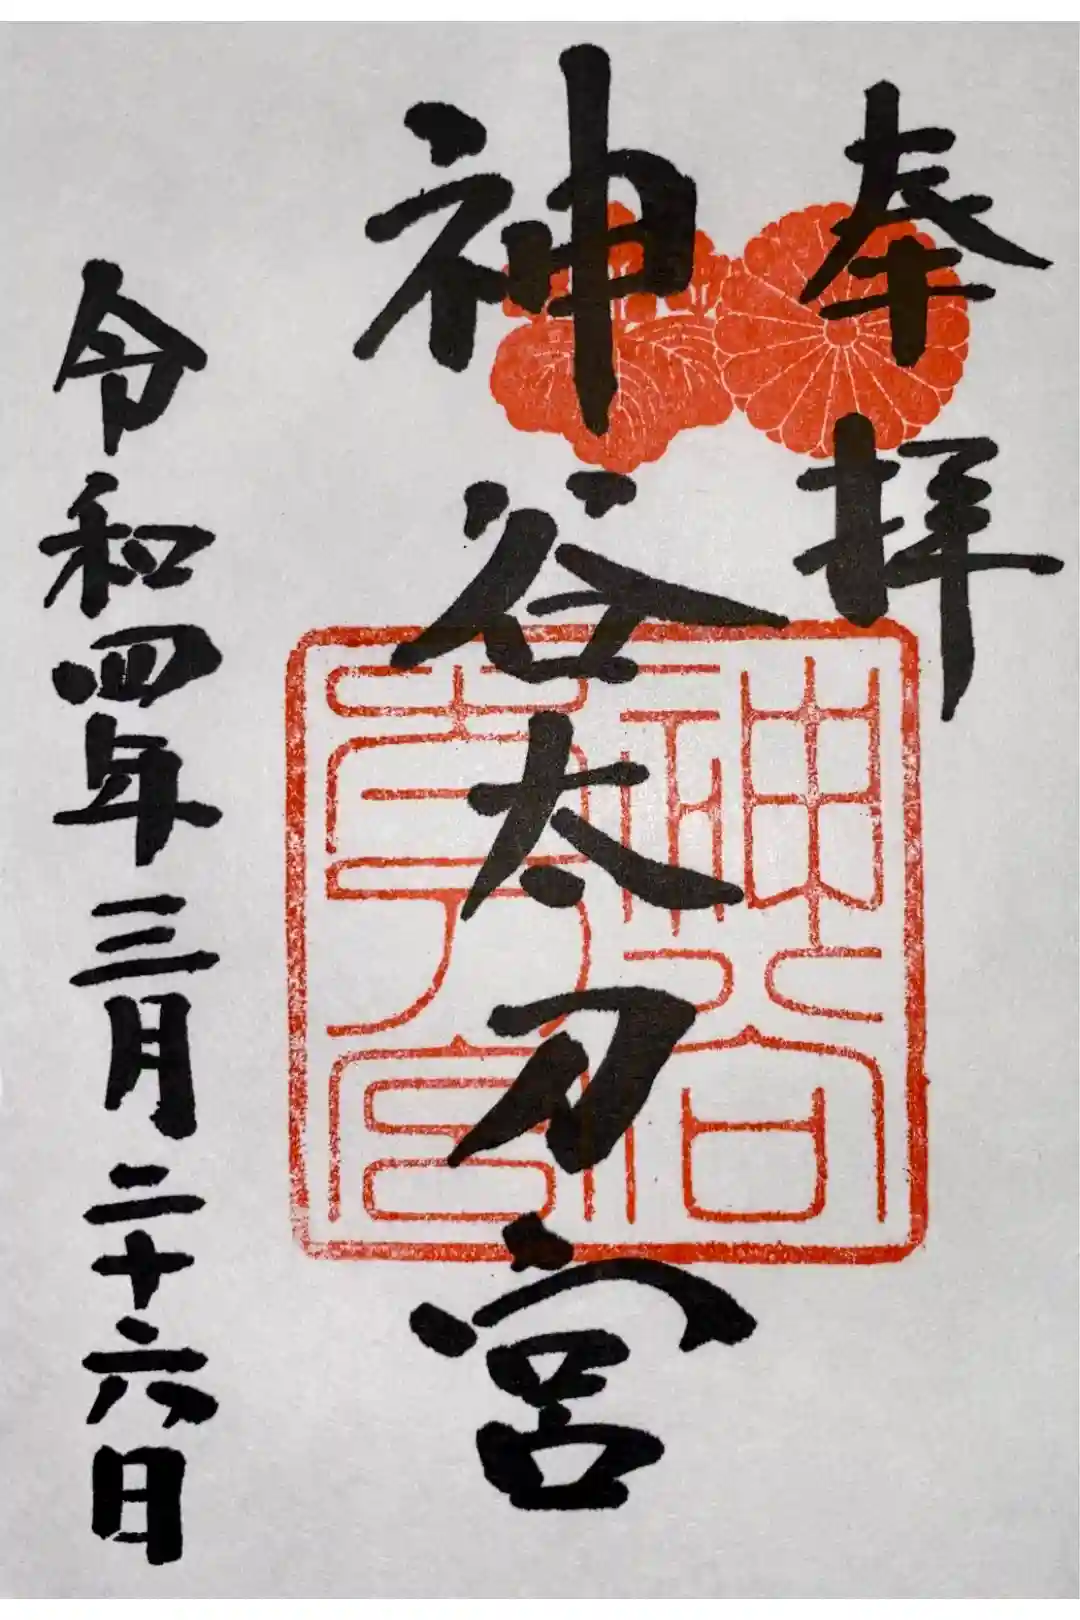 奉拝
神谷太刀宮
神谷太刀宮
令和四年三月二十六日